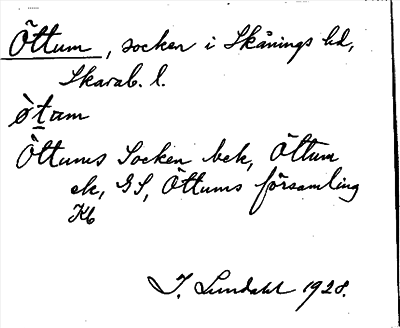 Öttum, socken i Skånings hd,
Skarab. l.
øtum
Öttums Socken bek, Öttum
ek, GS, Öttums församling
Kb
I. Lundahl 1928.